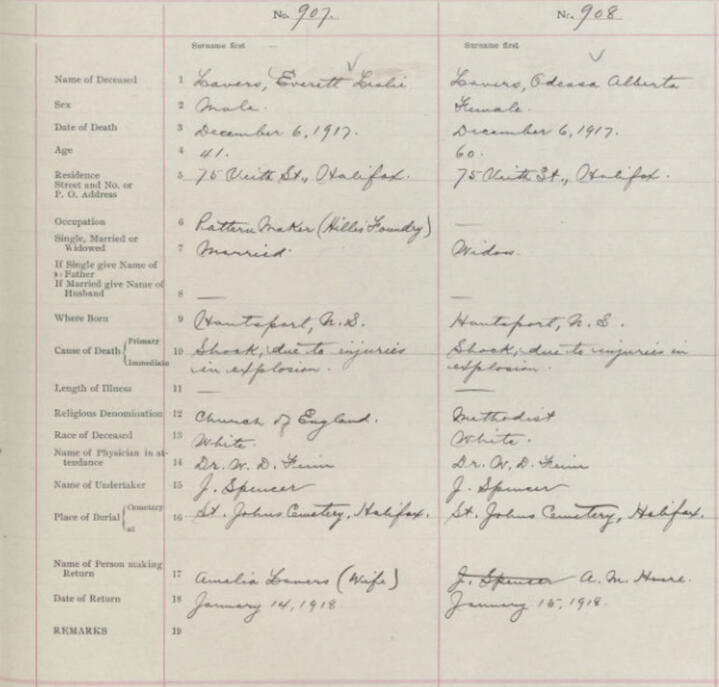 No. 907. No. 908
Surname first Surname first
Name of Deceased 1 Lavers, Everett Leslie Lavers, Odessa Alberta
Sex 2 Male. Female.
Date of Death 3 December 6, 1917. December 6, 1917.
Age 4 41. 60.
Residence 5 75 Veith St., Halifax. 75 Veith St., Halifax.
Street and No. or
P. O. Address
Occupation 6 Pattern Maker (Hillis Foundry) —
Single, Married or
Widowed 7 Married. Widow.
If Single give Name of
Father
If Married give Name of
Husband 8 —
Where Born 9 Hantsport, N. S. Hantsport, N. S.
Cause of Death { Primary
Immediate 10 Shock, due to injuries Shock, due to injuries in
in explosion. explosion.
Length of Illness 11 — —
Religious Denomination 12 Church of England. Methodist
Race of Deceased 13 White. White.
Name of Physician in at-
tendance 14 Dr. W. D. Finn Dr. W. D. Finn
Name of Undertaker 15 J. Spencer J. Spencer
Place of Burial { Cemetery
at 16 St. Johns Cemetery, Halifax. St. Johns Cemetery, Halifax.
Name of Person making
Return 17 Amelia Lavers (Wife) J. Spencer A. M. Hoare.
Date of Return 18 January 14, 1918. January 15, 1918.
REMARKS 19